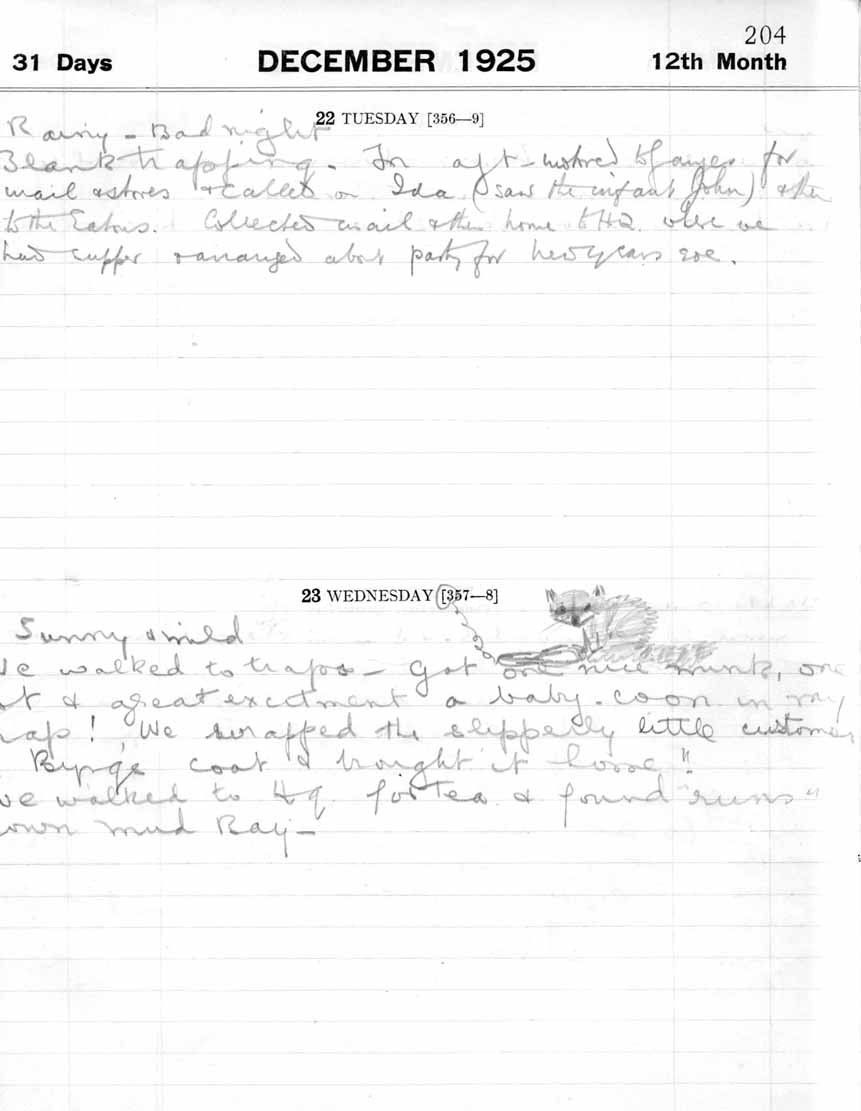 204
31 Days DECEMBER 1925 12th Month
22 TUESDAY [356—9]
Rainy - Bad night
Blank trapping. In aft - motored to Ganges for
mail & stores & called on Ida (saw the infant John) & then
to the Eatons. Collected mail & then home to HQ where we
had supper & arranged about party for New Years eve.
23 WEDNESDAY [357—8]
Sunny & mild
We walked to traps - Got one nice mink, one
& great excitment a baby coon in my
trap! We wrapped the slipperly little customer
coat & brought it home"
we walked to Hq. for tea & found "runs"
down mud Bay -